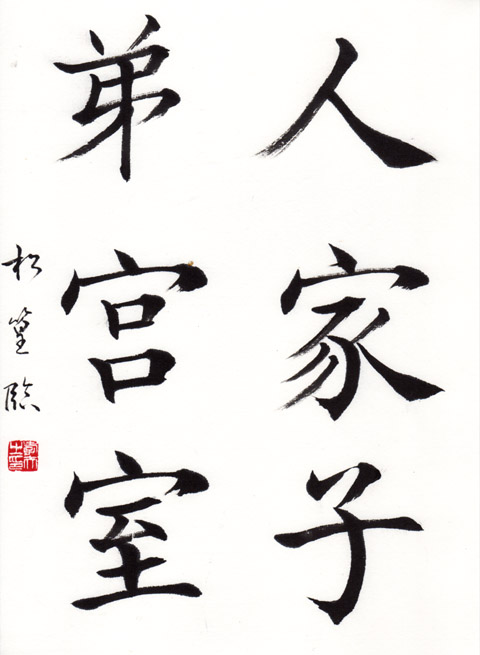 人家子
弟宮室
松篁臨